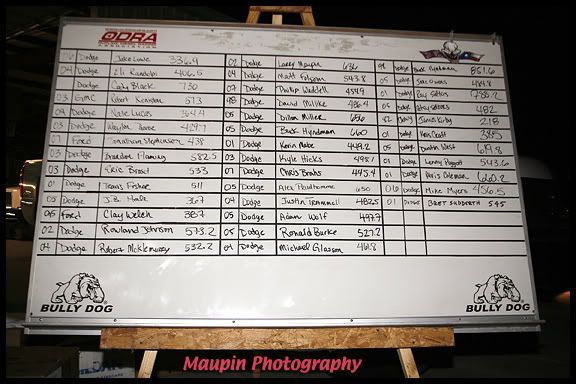 ODRA
ASSOCIATION
Dodge Jake Lowe 336.4
04 Dodge Eli Randolph 406.5
Dodge Cody Black 730
03 GMC Robert Kennison 573
Dodge Nate Lucas 364.4
Dodge 429.7
Ford Jonathan Stephenson 438
03 Dodge Brandon Fleming 582.5
03 Dodge Eric Brost 533
01 Dodge Travis Fisher 511
05 Dodge J.B. Hale 367
06 Ford Clay Welch 367
02 Dodge Rowland Johnson 573.2
04 Dodge Robert McKlemurry 532.2
02 Dodge Larry Maupin 636
04 Dodge Matt Folsom 543.8
07 Dodge Phillip Waddell 454.9
98 Dodge David Millike 486.4
05 Dodge Dillon Miller 656
05 Dodge Buck Hyndman 660
01 Dodge Kevin Mabe 449.2
03 Dodge Kyle Hicks 498.1
07 Dodge Chris Brooks 445.4
05 Dodge Alex 650
04 Dodge Justin Trammell 482.5
05 Dodge Adam Wolf 497.7
05 Dodge Ronald Burke 527.2
04 Dodge Michael Glasson 461.8
Dodge Buck Hyndman 851.6
05 Dodge 484.8
01 Dodge
05 Dodge 482
James Kirby 218
01 Dodge Ken Scott 385
05 Dodge Dustin West 619.8
01 Dodge Lenny Piggott 543.6
01 Dodge Coleman 660.2
06 Dodge Mike Myers 456.5
01 Dodge Bret Sudderth 545
BULLY DOG
BULLY DOG
Maupin Photography